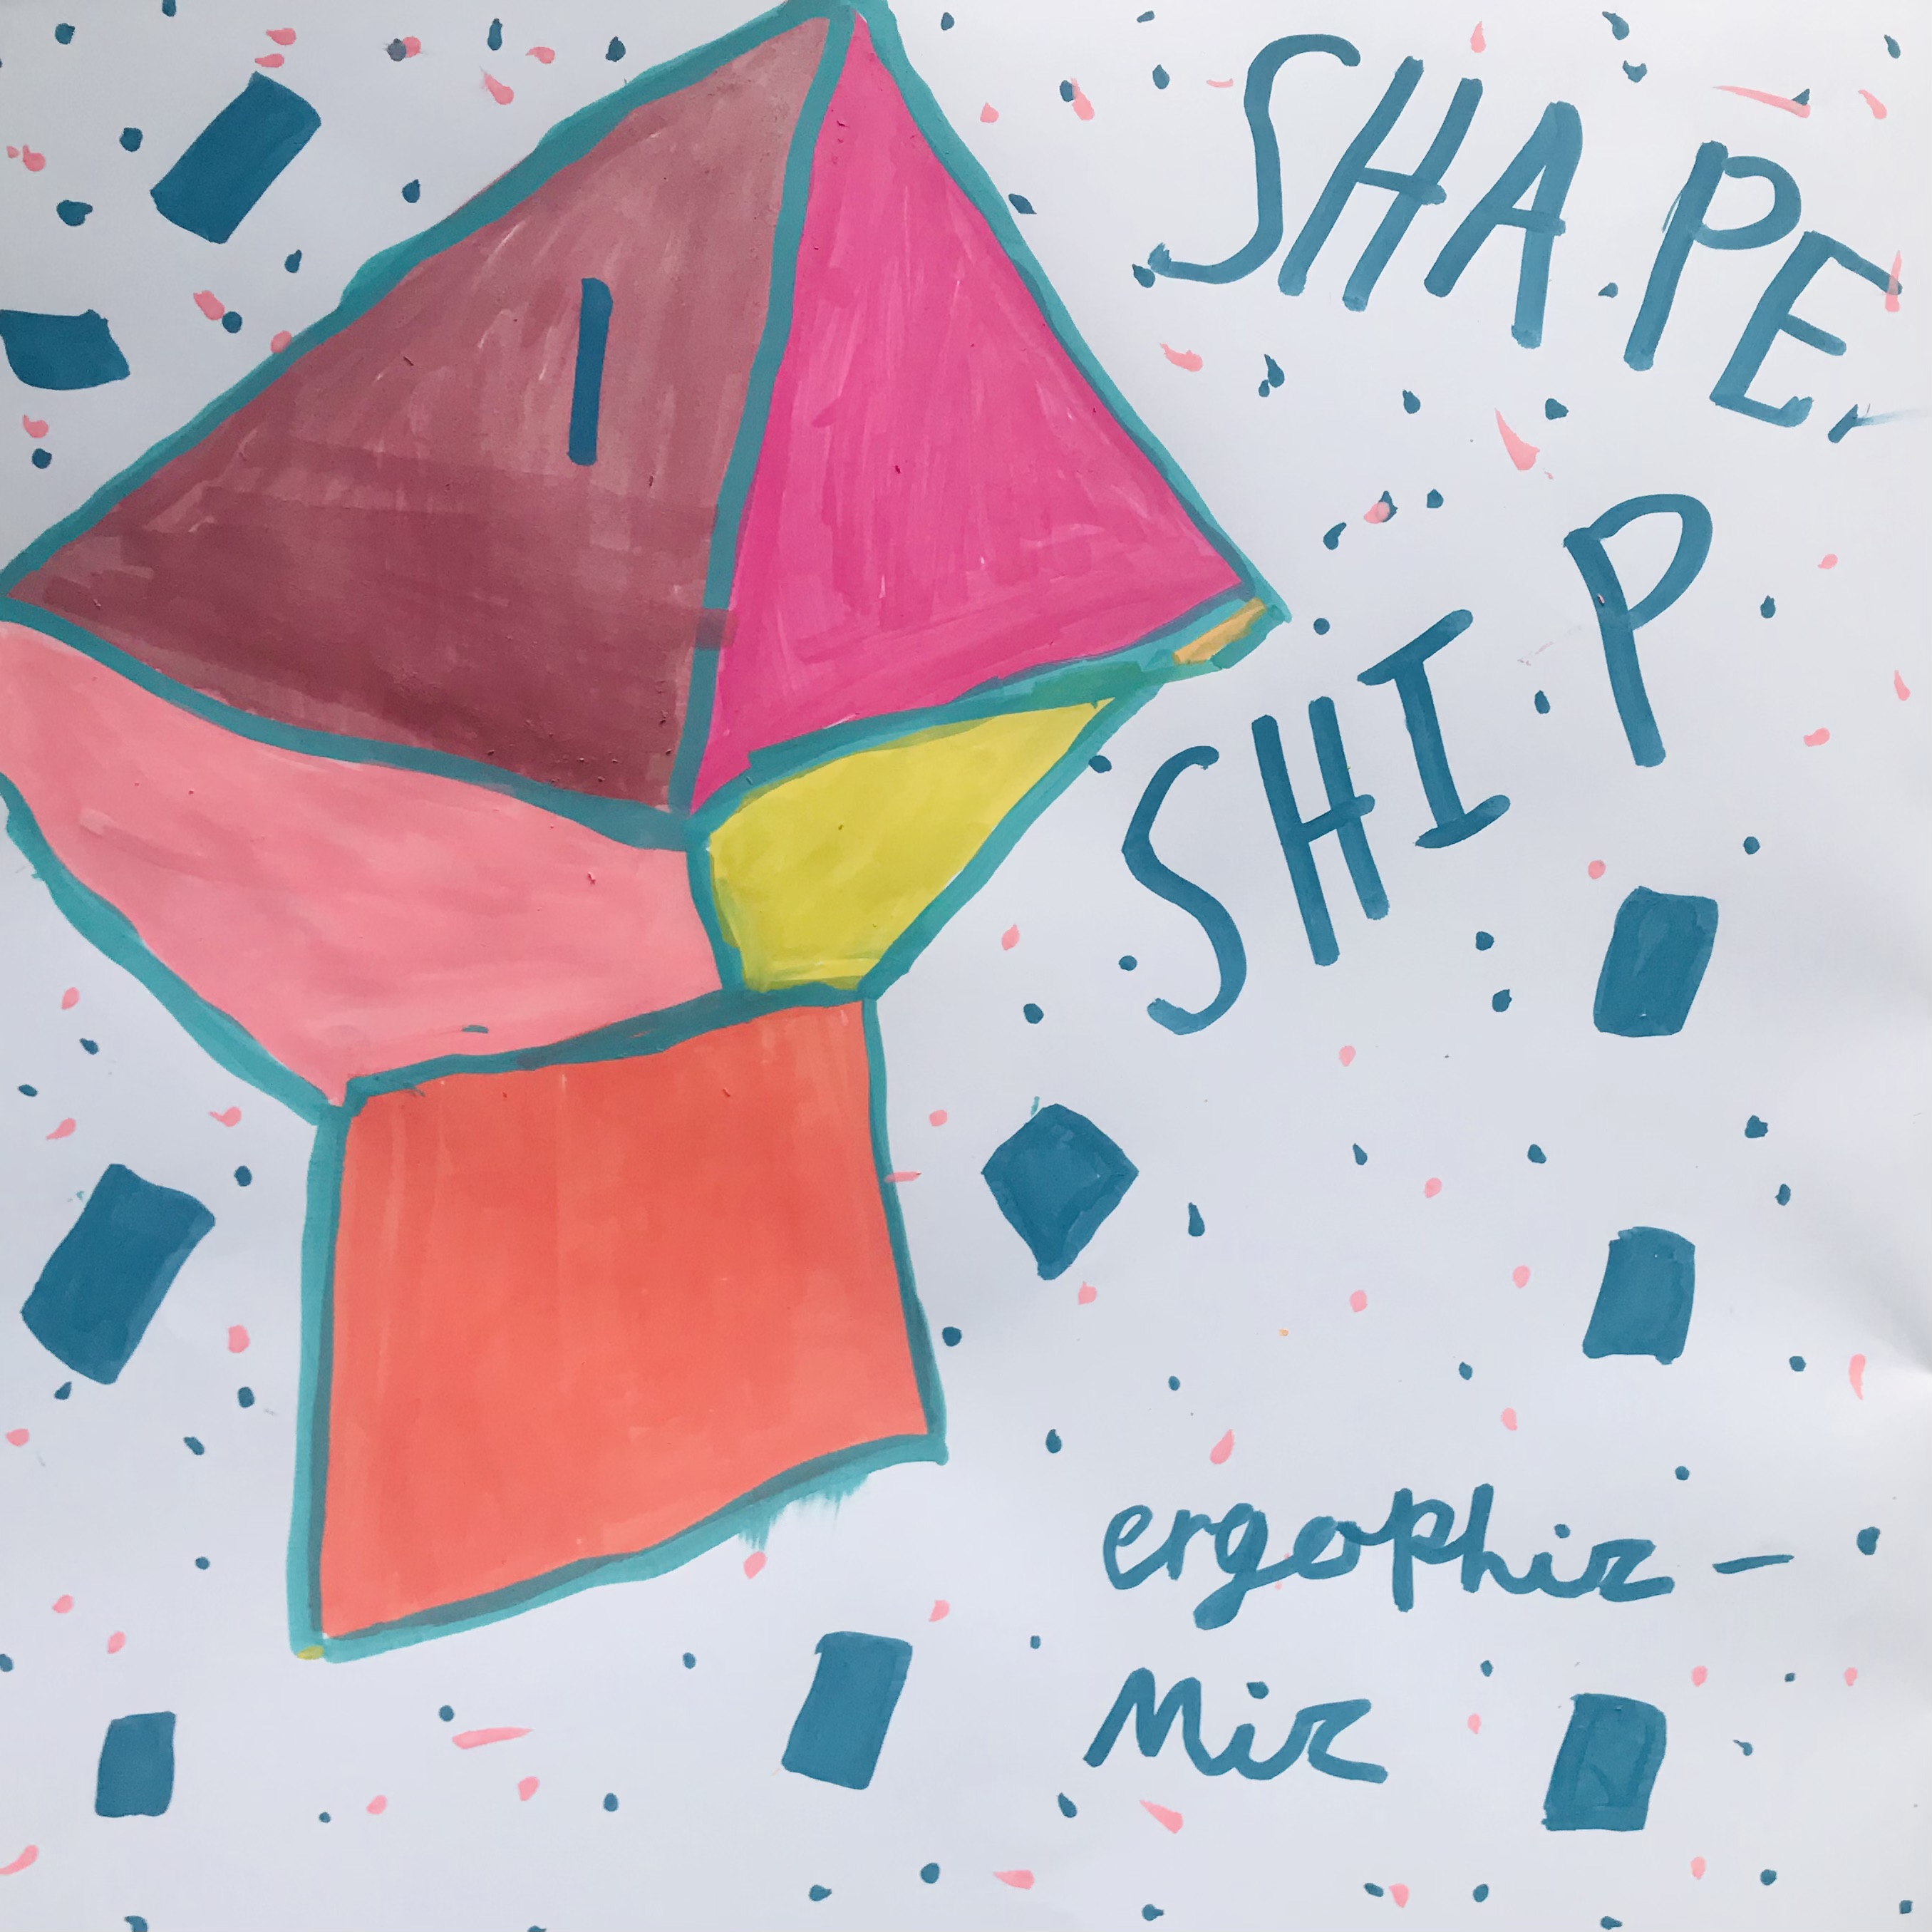 SHAPE
SHIP
I
ergophiz-
Miz